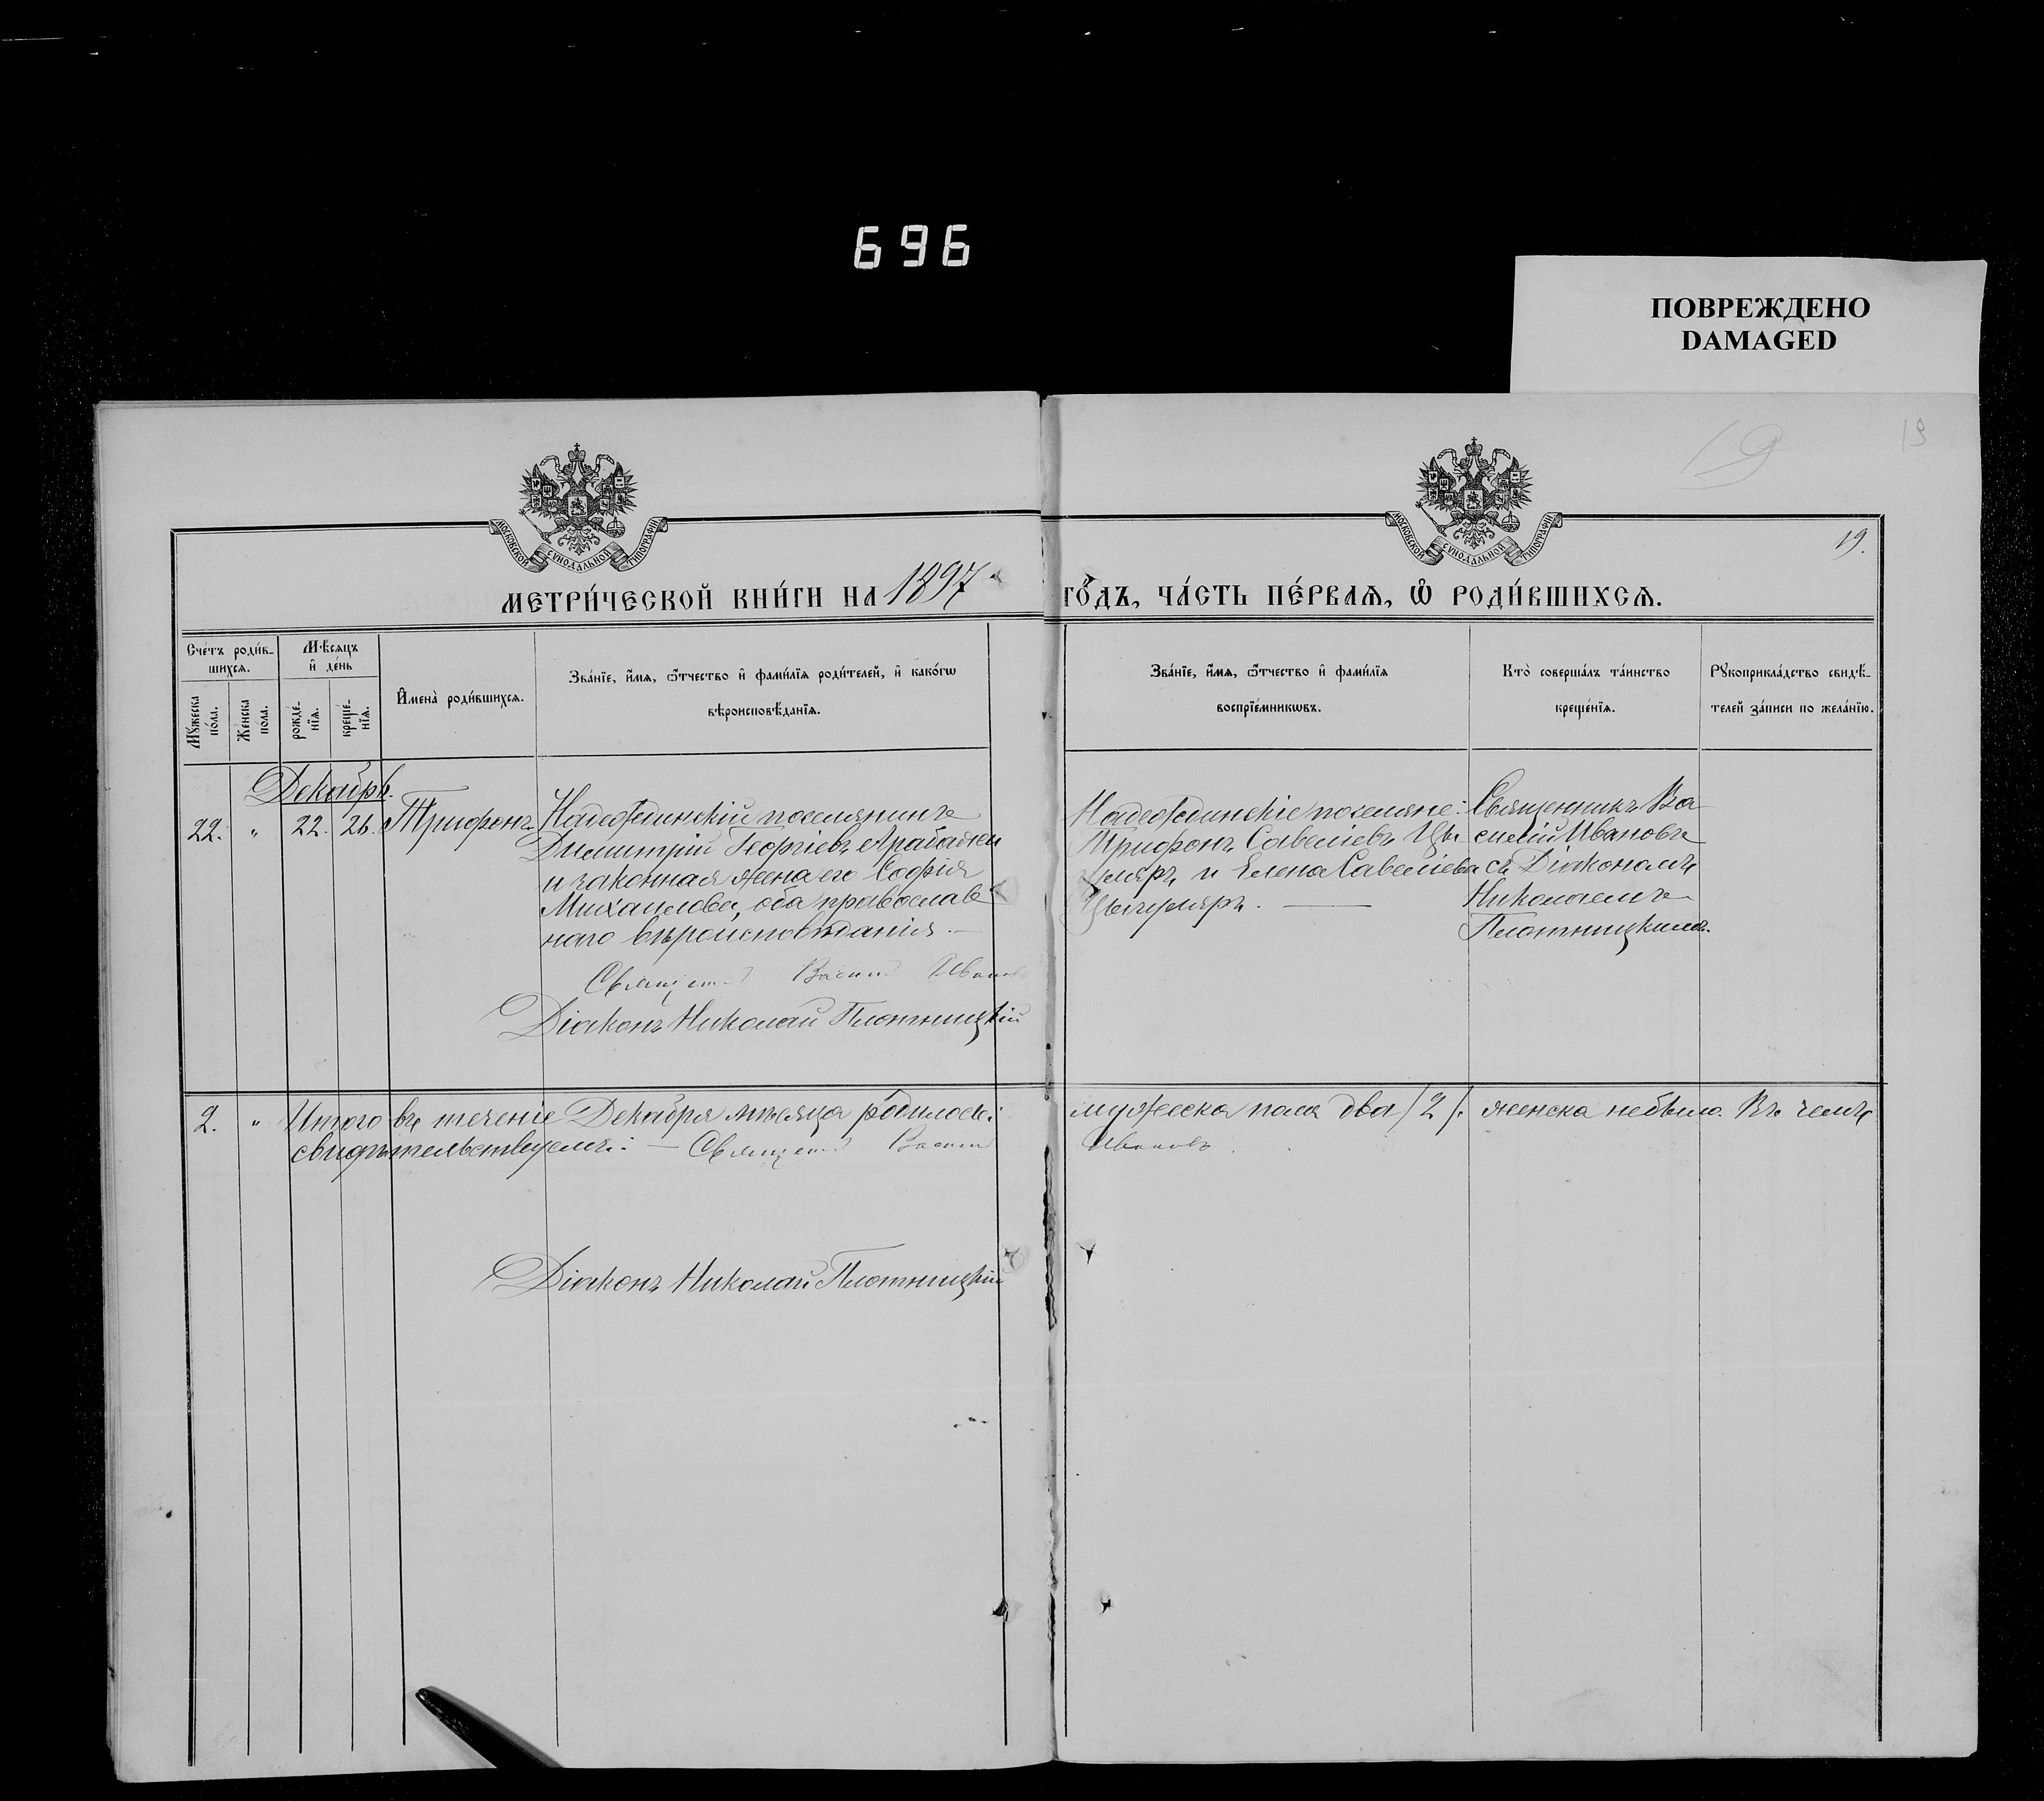 696
ПОВРЕЖДЕНО
DAMAGED
19
19
МОСКОВСКОЙ СѴНОДАЛЬНОЙ ТИПОГРАФІИ
МОСКОВСКОЙ СѴНОДАЛЬНОЙ ТИПОГРАФІИ
19.
МЕТРИ́ЧЕСКОЙ КНИ́ГИ НА 1897
ГО́ДЪ, ЧА́СТЬ ПЕ́РВАѦ, Ѡ҆ РОДИ́ВШИХСѦ.
Сче́тъ роди́в-
шихсѧ.
Мѣ́сѧцъ
и҆ де́нь
Мꙋ́жеска
по́ла.
Же́нска
по́ла.
рожде́-
нїѧ.
креще́-
нїѧ.
И҆мена̀ роди́вшихсѧ.
Зва́нїе, и҆́мѧ, ѻ҆́тчество и҆ фами́лїѧ роди́телей, и҆ како́гѡ
вѣроисповѣ́данїѧ.
Зва́нїе, и҆́мѧ, ѻ҆́тчество и҆ фами́лїѧ
воспрїе́мникѡвъ.
Кто̀ соверша́лъ та́инство
креще́нїѧ.
Рꙋкоприкла́дство свидѣ́-
телей за́писи по жела́нїю.
Декабрь.
22. " 22. 26. Трифонъ.
Надеждинскій поселянинъ
Димитрій Георгіевъ Арабаджи
и законная жена его Софія
Михаилова, оба православ
наго вѣроисповѣданія. —
Священ Василій Иванов
Діаконъ Николай Плотницкій
Надеждинскіе поселяне:
Трифонъ Савеліевъ
и Елена Савеліева
Священникъ Ва
силій Ивановъ
съ Діакономъ
Николаемъ
Плотницкимъ.
2. " Итого въ теченіе Декабря мѣсяца родилось: мужеска пола два /2/. женска небыло. Въ чемъ
свидѣтельствуемъ: — Священ Василій Ивановъ
Діаконъ Николай Плотницкій